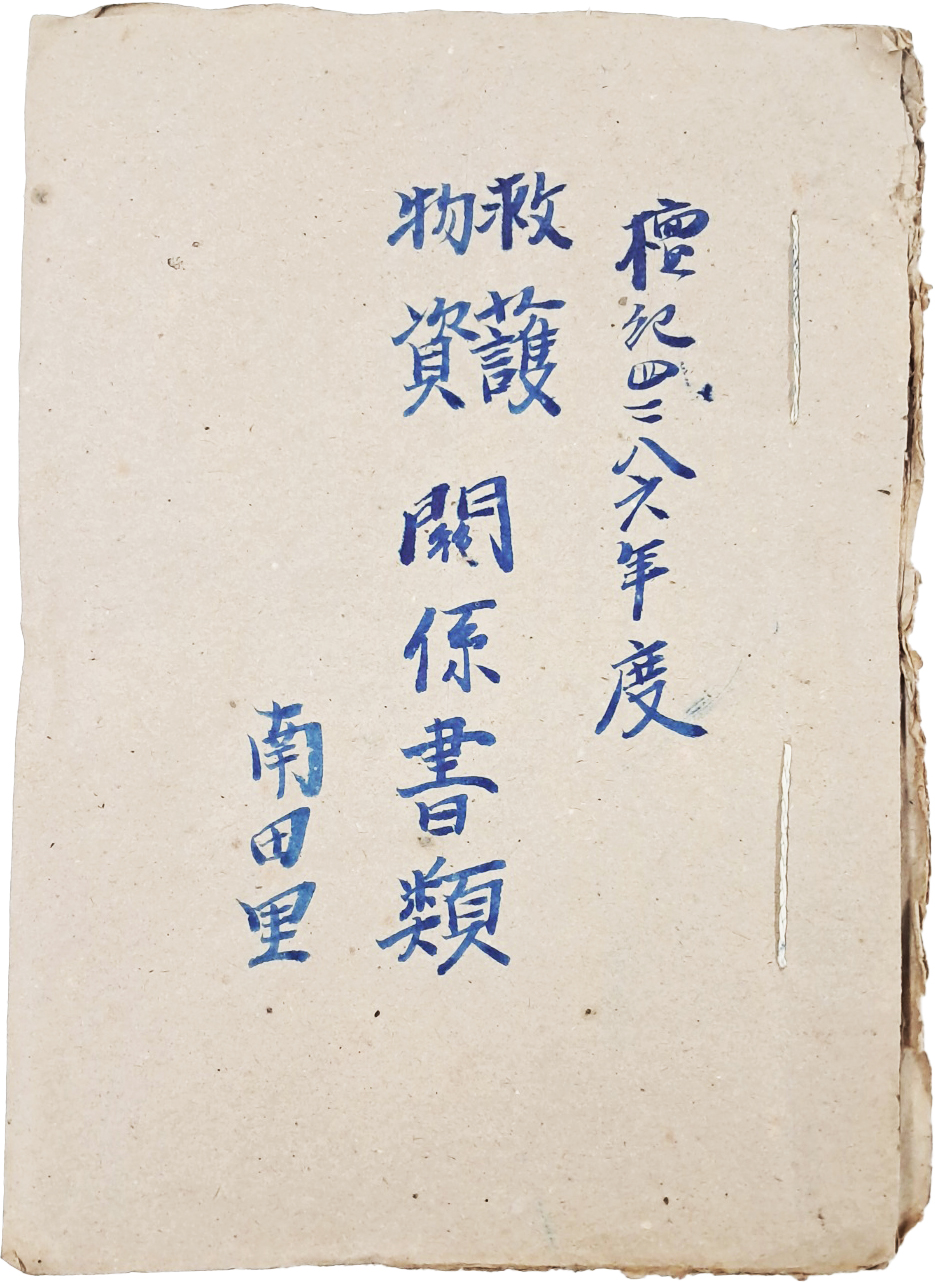 檀紀四二八六年度
救護
物資
關係書類
南田里